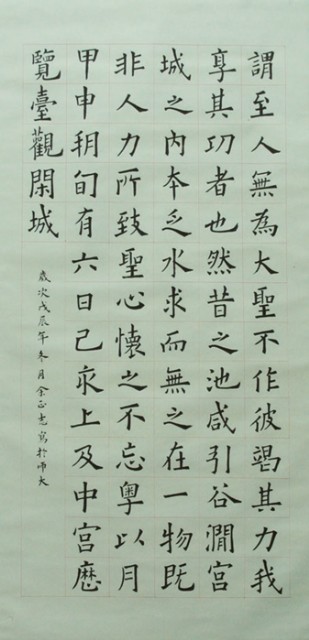 謂至人無為大聖不作彼竭其力我
享其功者也然昔之池咸引谷澗宮
城之內本乏水求而無之在一物既
非人力所致聖心懷之不忘粵以月
甲申朔旬有六日己亥上及中宮歷
覽臺觀閑城
歲次戊辰年冬月余寫於師大